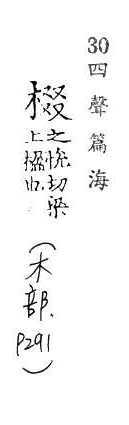 30 四聲篇海
棳 之悅切梁
上楹也
(木部. P291)